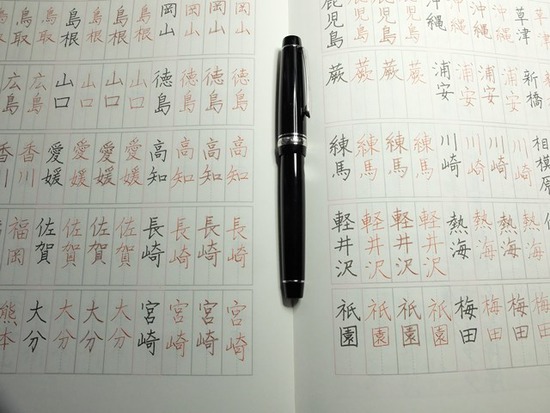 草津
沖縄
沖縄
沖縄
鹿児島
鹿児島
鹿児島
鹿児島
新橋
浦安
浦安
浦安
浦安
蕨
蕨
蕨
蕨
相模原
川崎
川崎
川崎
川崎
練馬
練馬
練馬
練馬
熱海
熱海
熱海
熱海
軽井沢
軽井沢
軽井沢
軽井沢
梅田
梅田
梅田
梅田
祇園
祇園
祇園
祇園
岡山
岡山
岡山
岡山
島根
島根
島根
島根
鳥取
鳥取
徳島
徳島
徳島
徳島
山口
山口
山口
山口
広島
広島
高知
高知
高知
高知
愛媛
愛媛
愛媛
愛媛
香川
香川
長崎
長崎
長崎
長崎
佐賀
佐賀
佐賀
佐賀
福岡
宮崎
宮崎
宮崎
宮崎
大分
大分
大分
大分
熊本